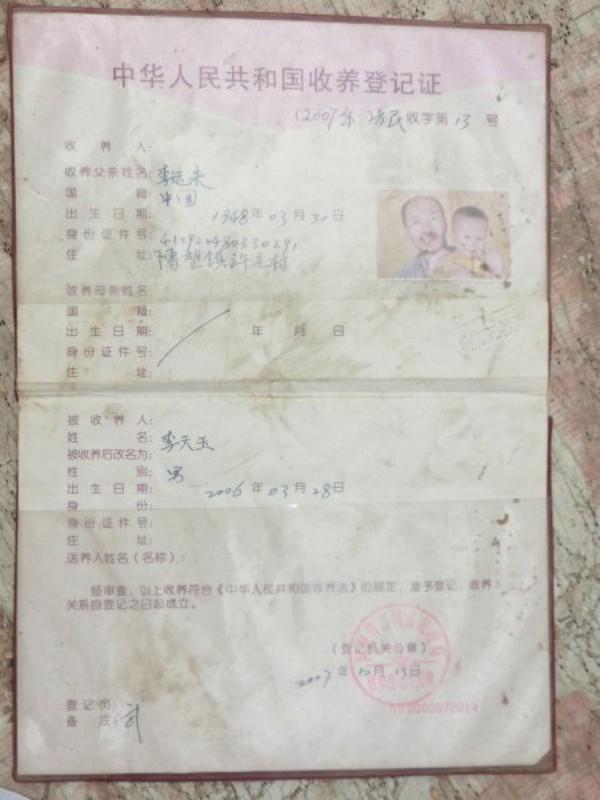 中华人民共和国收养登记证
(2007年 民收字第13号
收养人:
收养父亲姓名: 李远来
国籍: 中国
出生日期: 1948年03月30日
身份证件号: 412922480330291
住址: 博望镇许庄村
收养母亲姓名:
国籍:
出生日期: 年 月 日
身份证件号:
住址:
被收养人:
姓名: 李天玉
被收养后改名为:
性别: 男
出生日期: 2006年03月28日
身份:
身份证件号:
住址:
送养人姓名(名称):
经审查,以上收养符合《中华人民共和国收养法》的规定,准予登记,收养
关系自登记之日起成立。
(登记机关公章)
2007年12月13日
NO.0000072014
登记员:
备注: